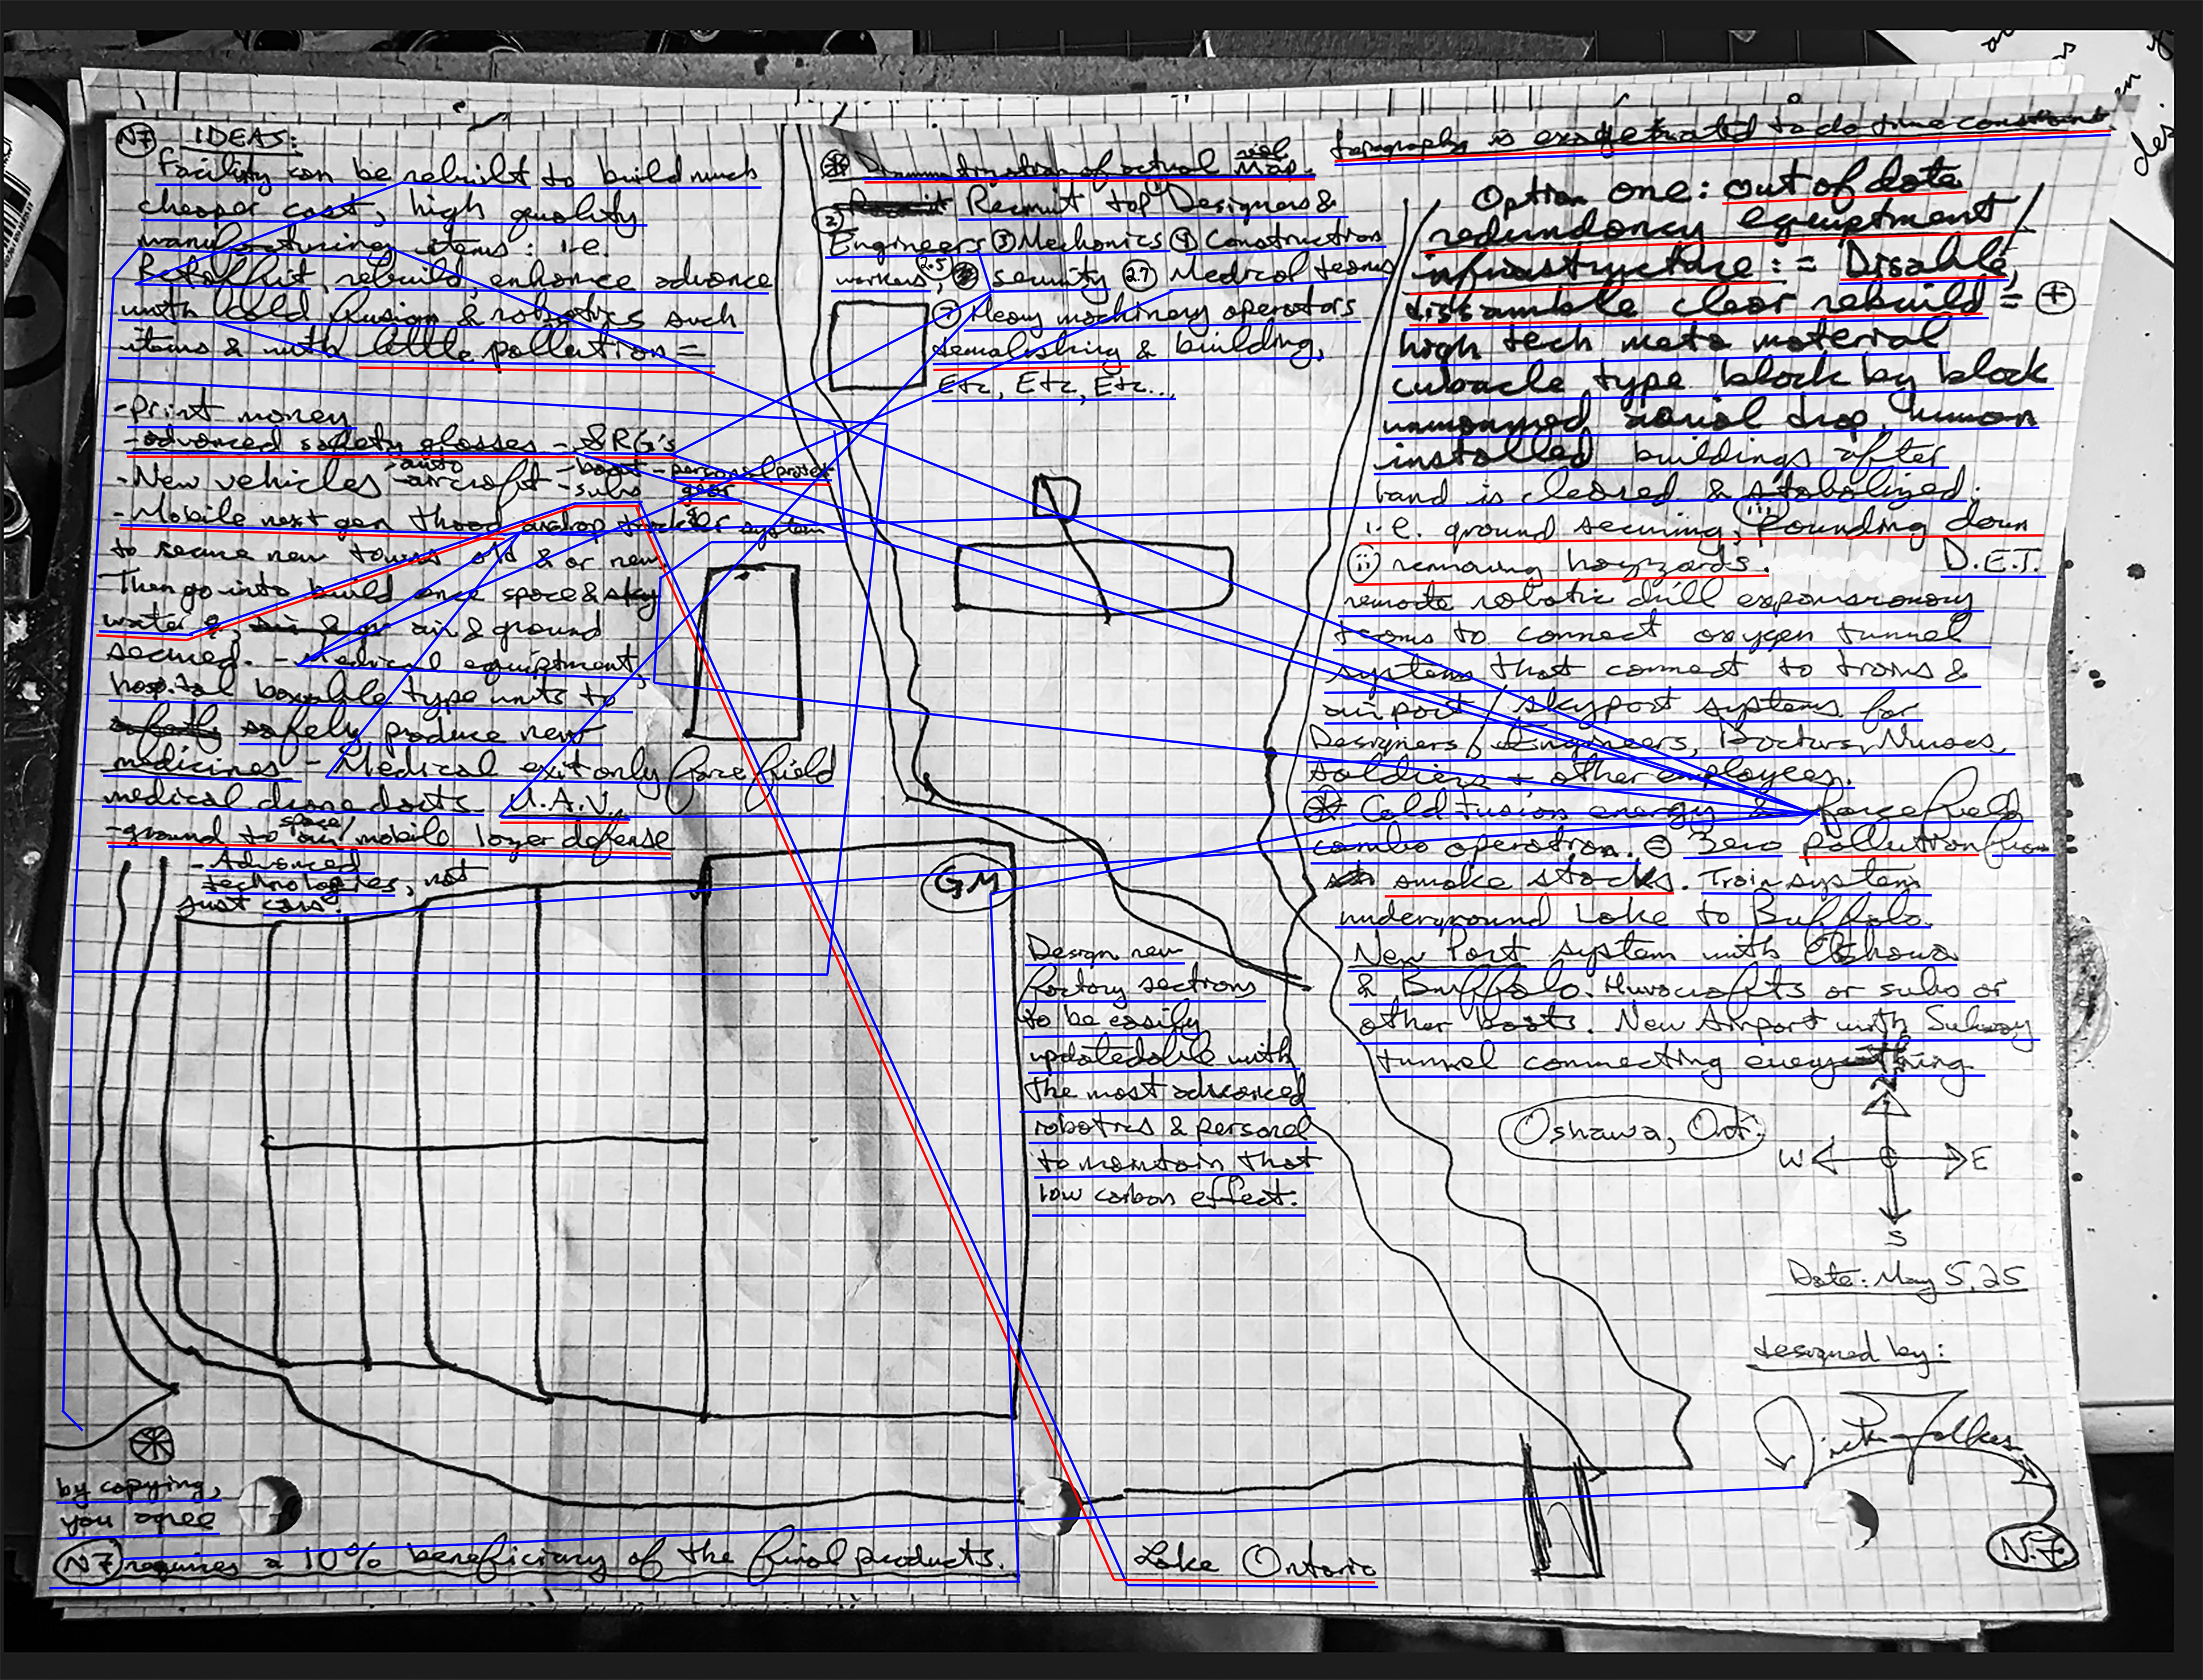 N7 IDEAS:
Facility can be rebuilt to build much
cheaper cost, high quality
manufacturing items: i.e.
rebuild, enhance advance
with Cold fusion & robotics such
items & with little pollution =
-Print money
-advanced safety glasses - SRG's
-New vehicles -auto -aircraft -boat -subs -personal protex gear
-Mobile next gen airdrop system
to secure new towns old & or new.
Then go into build once space & sky
water &, air & ground
secured. -Medical equiptment,
hospital type units to
safely produce new
medicines - Medical exit only forcefield
medical drone darts U.A.V.
-ground to space/air/mobile lazer defense
-Advanced
technologies, not
just cars.
of actual map.
② Recruit top Designers &
Engineers ③ Mechanics ④ Construction
workers, 2.5 security 2.7 Medical teams
⑦ Heavy machinery operators
demolishing & building,
Etc, Etc, Etc...
topography is exagetrated to do time constraint
Option one: out of date
redundancy equiptment
infrustructure: = Disable,
dissamble clear rebuild = +
high tech meta material
cubacle type block by block
unmanned aerial drop, human
installed buildings after
land is cleared & stabolized.
i.e. ground securing, (iii) Pounding down
(ii) removing hazzards. D.E.T.
remote robotic drill expansionary
teams to connect oxygen tunnel
systems that connect to trains &
airport/skyport systems for
Designers, Engineers, Doctors, Nurses,
soldiers + other employees.
Cold Fusion energy & forcefield
combo operation. = Zero Pollution from
smoke stacks. Train system
underground Lake to Buffalo.
New Port system with Oshawa
& Buffalo. Huvacrafts or subs or
other boats. New Airport with Subway
tunnel connecting everything
GM
Design new
factory sections
to be easily
updatedable with
the most advanced
robotics & personel
to maintain that
low carbon effect.
Oshawa, Ont.
N
W E
S
Date: May 5, 25
designed by:
N.F.
by copying,
you agree
N7 requires a 10% beneficiary of the final products.
Lake Ontario